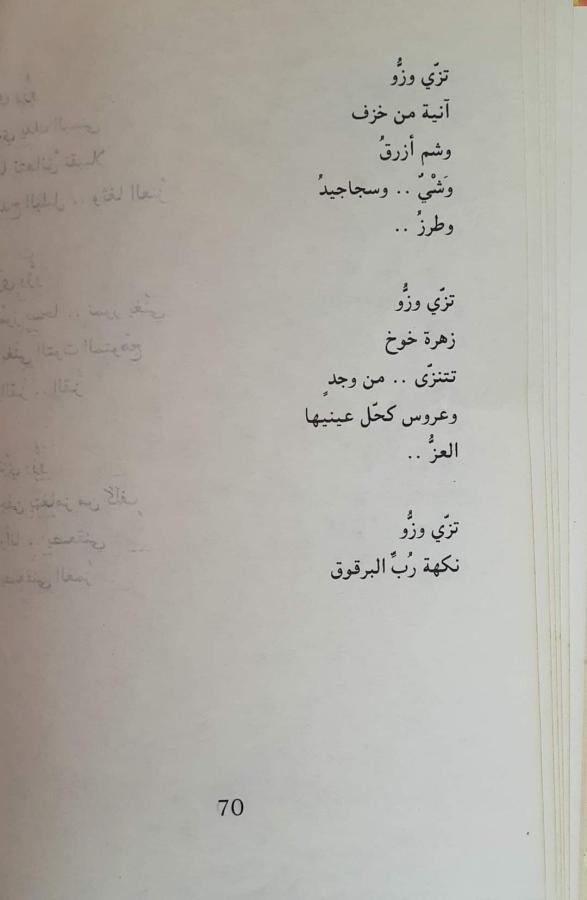 تزّي وزُّو
آنية من خزف
وشم أزرقُ
وَشْيٌ .. وسجاجيدُ
وطرزُ ..
تزّي وزُّو
زهرة خوخ
تتنزّى .. من وجدٍ
وعروس كحّل عينيها
العزُّ ..
تزّي وزُّو
نكهة رُبِّ البرقوق
70